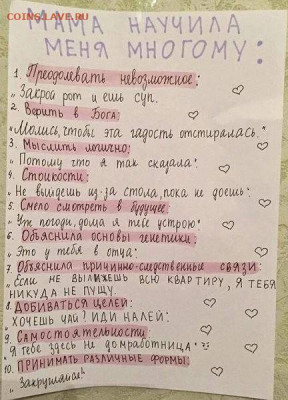 COINSS.LAVE.RU
МАМА НАУЧИЛА
МЕНЯ МНОГОМУ:
1. Преодолевать невозможное:
"Закрой рот и ешь суп."
2. Верить в Бога:
"Молись, чтобы эта гадость отстиралась."
3. Мыслить логично:
"Потому что я так сказала."
4. Стойкости:
"Не выйдешь из-за стола, пока не доешь."
5. Смело смотреть в будущее:
"Уж погоди, дома я тебе устрою."
6. Объяснила основы генетики:
"Это у тебя в отца."
7. Объяснила причинно-следственные связи:
"Если не вылижешь всю квартиру, я тебя
никуда не пущу."
8. Добиваться целей:
"Хочешь чай? Иди налей."
9. Самостоятельности:
"Я тебе здесь не домработница."
10. Принимать различные формы:
"Закругляйся"